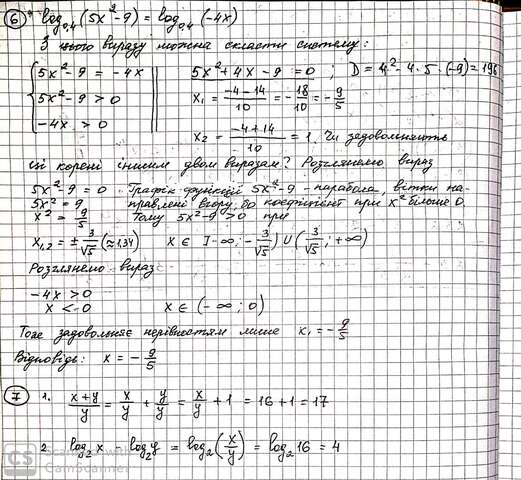 6) log₀,₄(5x²-9) = log₀,₄(-4x)
З цього виразу можна скласти систему:
{ 5x²-9 = -4x
5x²-9 > 0
-4x > 0
5x²+4x-9 = 0 ; D = 4²-4·5·(-9) = 196
x₁ = (-4-14)/10 = -18/10 = -9/5
x₂ = (-4+14)/10 = 1. Чи задовольняють
ці корені іншим двом виразам? Розглянемо вираз
5x²-9 = 0 Графік функції 5x²-9 - парабола, вітки на-
5x² = 9 правлені вгору, бо коефіцієнт при x² більше 0.
x² = 9/5 Тому 5x²-9 > 0 при
x₁,₂ = ± 3/√5 (≈1,34) x ∈ ]-∞; -3/√5) ∪ (3/√5; +∞)
Розглянемо вираз
-4x > 0
x < 0 x ∈ (-∞; 0)
Тоже задовольняє нерівностям лише x₁ = -9/5
Відповідь: x = -9/5
7) 1. (x+y)/y = x/y + y/y = x/y + 1 = 16+1 = 17
2. log₂x - log₂y = log₂(x/y) = log₂16 = 4
CS Scanned with
CamScanner